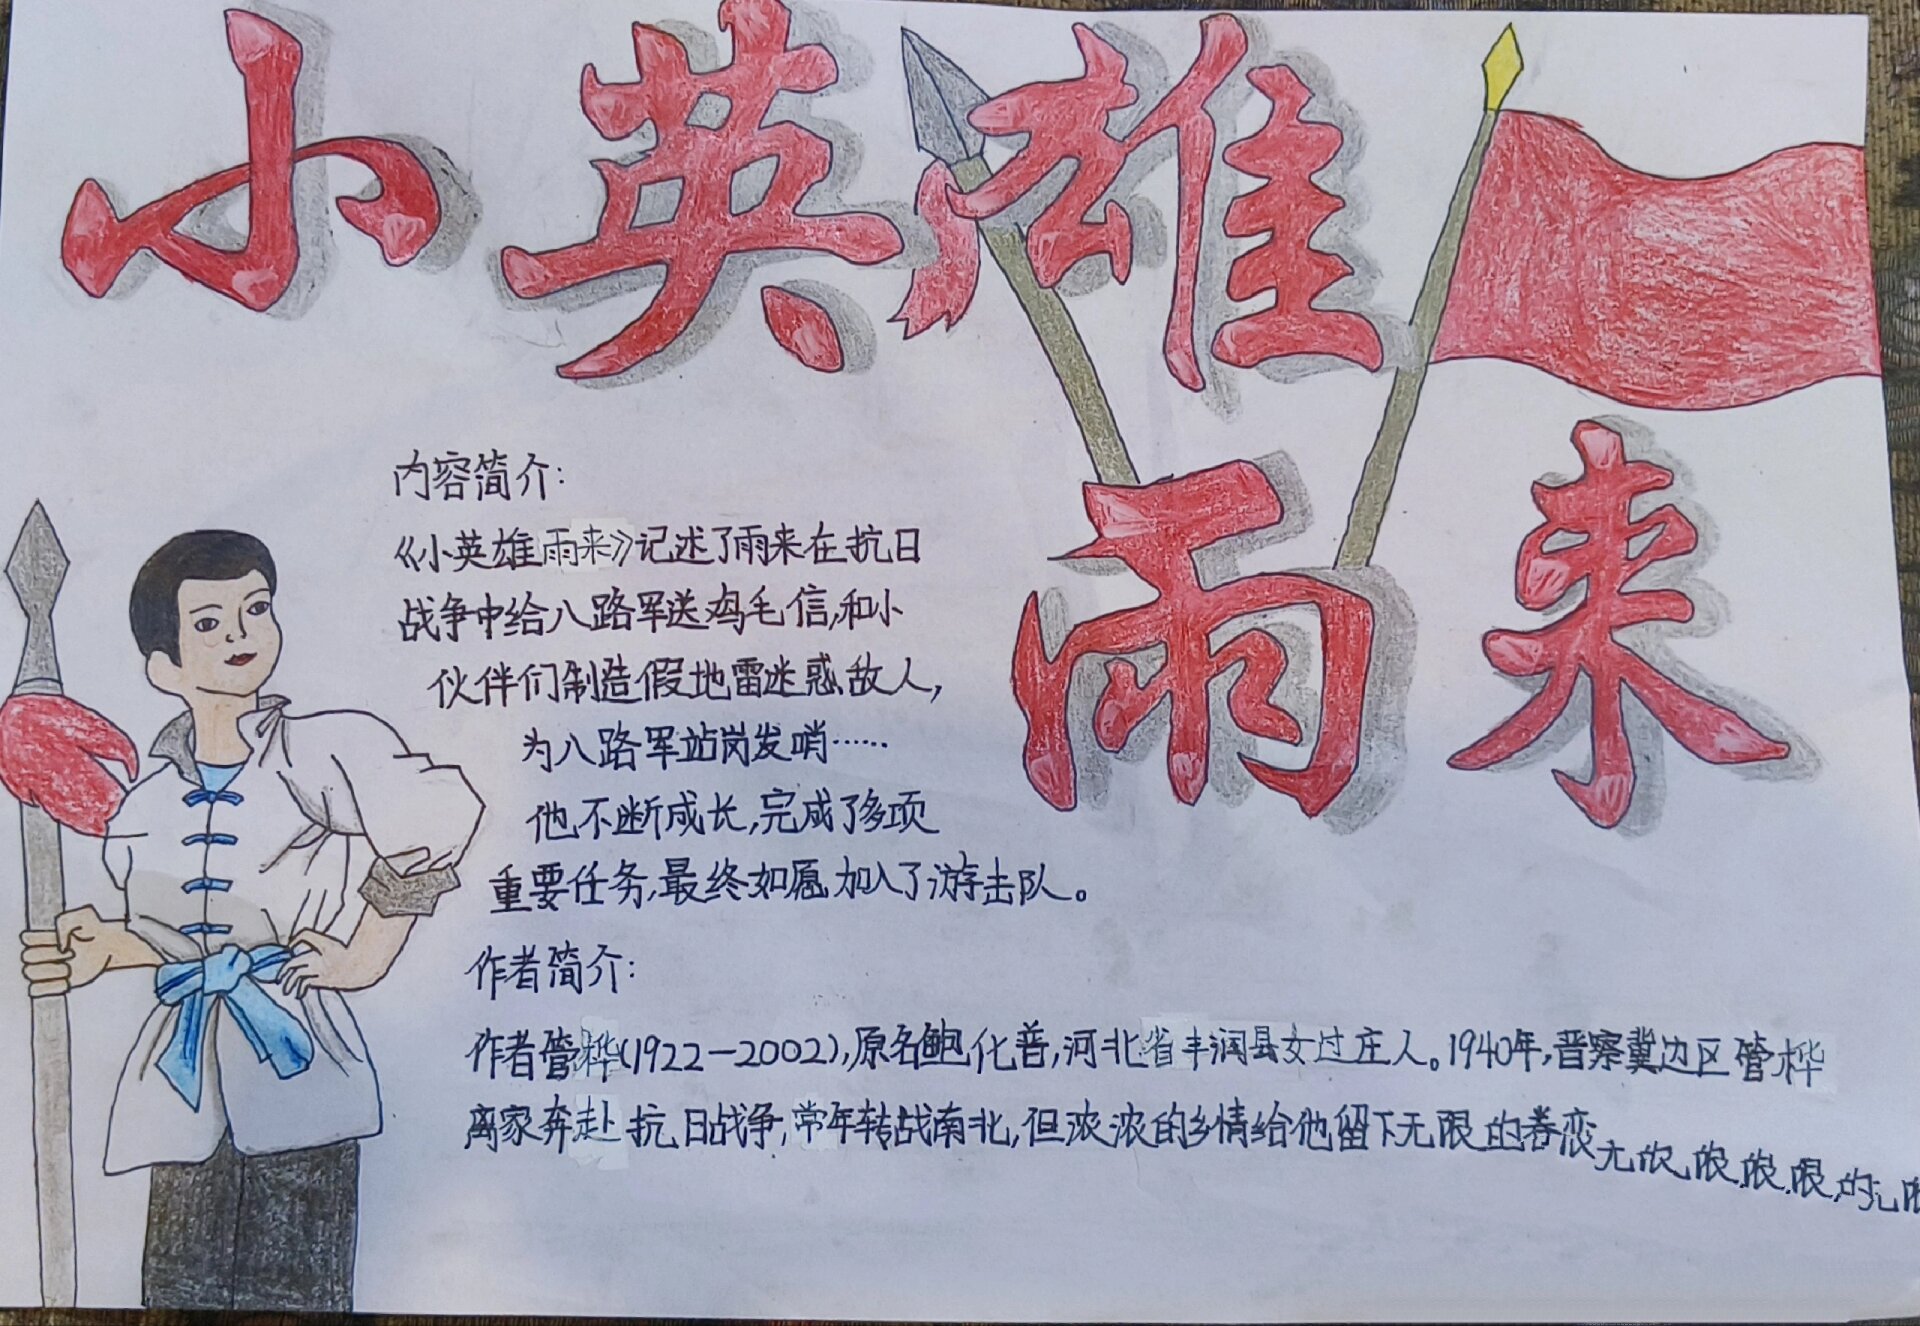 小英雄
雨来
内容简介:
《小英雄雨来》记述了雨来在抗日
战争中给八路军送鸡毛信,和小
伙伴们制造假地雷迷惑敌人,
为八路军站岗发哨……
他不断成长,完成了多项
重要任务,最终如愿加入了游击队。
作者简介:
作者管桦(1922-2002),原名鲍化普,河北省丰润县女过庄人。1940年,晋察冀边区管桦
离家奔赴抗日战争,常年转战南北,但浓浓的乡情给他留下无限的眷恋